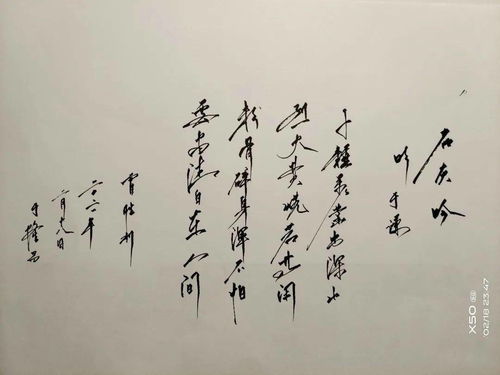 石灰吟
明 于谦
千锤万凿出深山
烈火焚烧若等闲
粉骨碎身浑不怕
要留清白在人间
胜利
年
二月十八日
于
X50
02/18 23:47